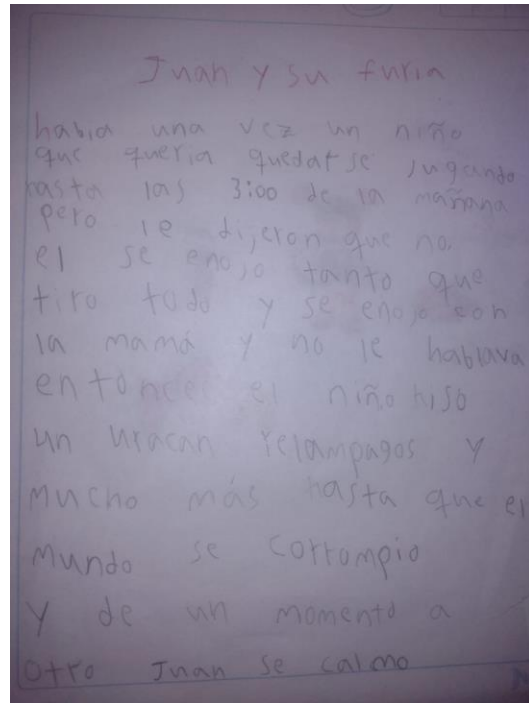 Juan y su furia
habia una vez un niño
que queria quedarse jugando
hasta las 3:00 de la mañana
pero le dijeron que no.
el se enojo tanto que
tiro todo y se enojo con
la mamá y no le hablava
entonces el niño hiso
un uracan relampagos y
mucho más hasta que el
mundo se corrompio
y de un momento a
otro Juan se calmo